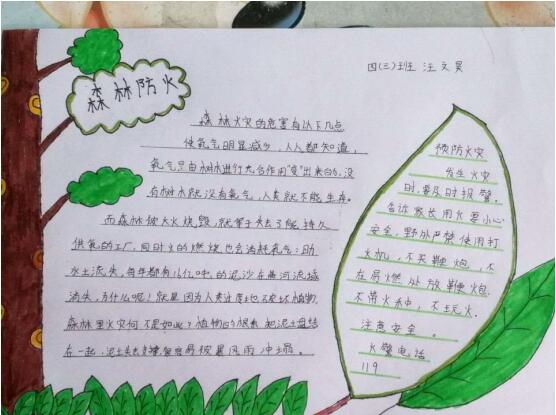 森林防火
四(三)班 汪文昊
森林火灾的危害有以下几点
使氧气明显减少,人人都知道,
氧气只由树林进行光合作用"变"出来的,没
有树木就没有氧气,人类就不能生存。
而森林被大火烧毁,就等于失去了能持久
供氧的工厂,同时火的燃烧也会消耗氧气:助
水土流失,每年都有16亿吨的泥沙在黄河流域
消失,为什么呢!就是因为人类过度地破坏植物.
森林里火灾何不是如此?植物的根系把泥土盘结
在一起,泥土失去支撑,便容易被暴风雨冲塌。
预防火灾
发生火灾
时,要及时报警.
告诉家长用火要小心
安全,野外严禁使用打
火机,不买鞭炮,不
在易燃处放鞭炮.
不带火种,不玩火.
注意安全。
火警电话
119